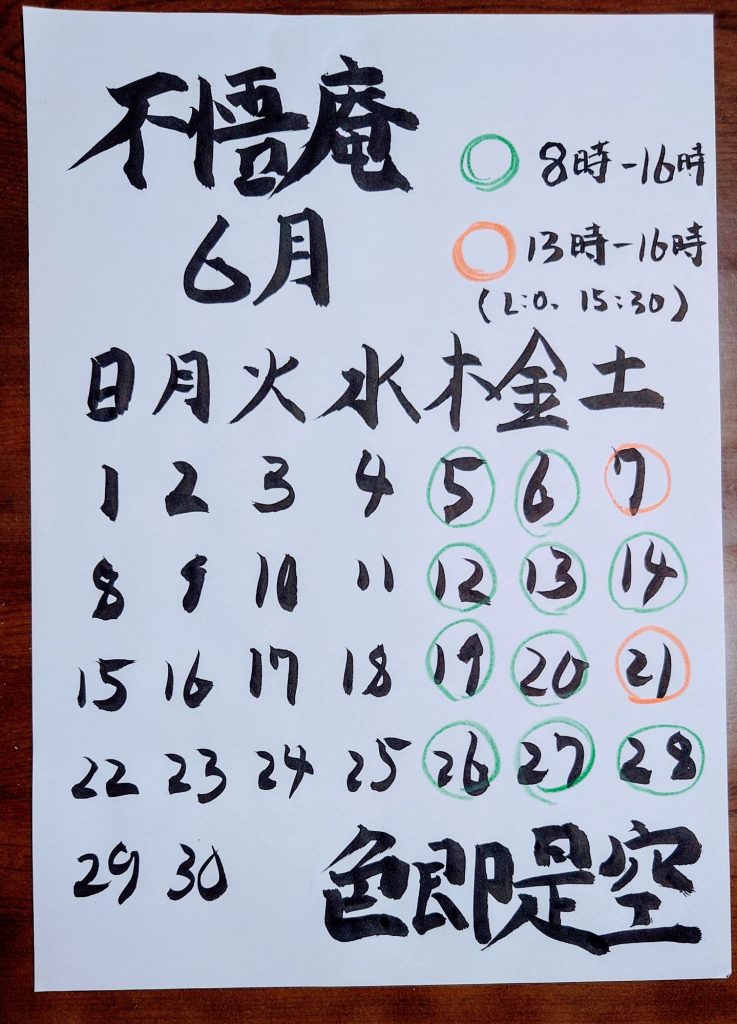 不悟庵
6月
8時-16時
13時-16時
(L:O. 15:30)
日 月 火 水 木 金 土
1 2 3 4 5 6 7
8 9 10 11 12 13 14
15 16 17 18 19 20 21
22 23 24 25 26 27 28
29 30
色即是空